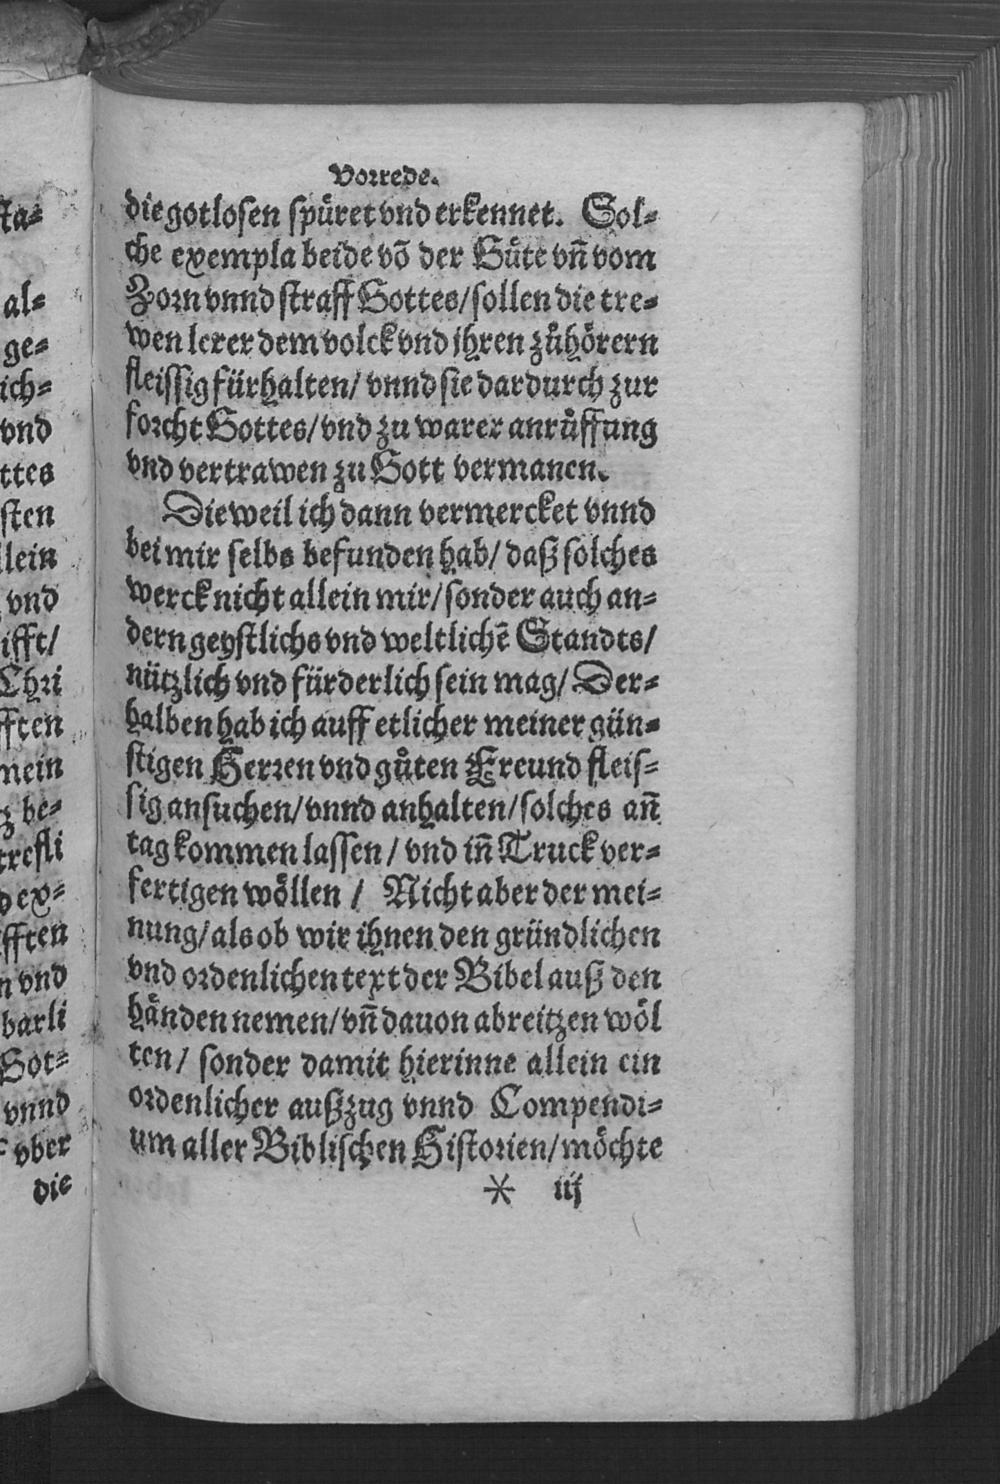 Vorrede.
die gotlosen spüret vnd erkennet. Sol-
che exempla beide võ der Gůte vñ vom
Zorn vnnd straff Gottes/sollen die tre-
wen lerer dem volck vnd jhren zůhörern
fleissig fürhalten/ vnnd sie dardurch zur
forcht Gottes/vnd zu warer anrůffung
vnd vertrawen zu Gott vermanen.
Dieweil ich dann vermercket vnnd
bei mir selbs befunden hab/ daß solches
werck nicht allein mir/sonder auch an-
dern geystlichs vnd weltlichẽ Standts/
nützlich vnd fürderlich sein mag/ Der-
halben hab ich auff etlicher meiner gün-
stigen Herren vnd gůten Freund fleis-
sig ansuchen/vnnd anhalten/solches añ
tag kommen lassen/ vnd iñ Truck ver-
fertigen wöllen / Nicht aber der mei-
nung/als ob wir ihnen den gründlichen
vnd ordenlichen text der Bibel auß den
händen nemen/vñ dauon abreitzen wöl
ten/ sonder damit hierinne allein ein
ordenlicher außzug vnnd Compendi-
um aller Biblischen Historien/möchte
* iij
sta-
al-
ge-
ich-
vnd
ttes
sten
llein
vnd
ifft/
Chri
fften
mein
be-
trefli
d ex-
ifften
n vnd
barli
Got-
vnnd
vber
die